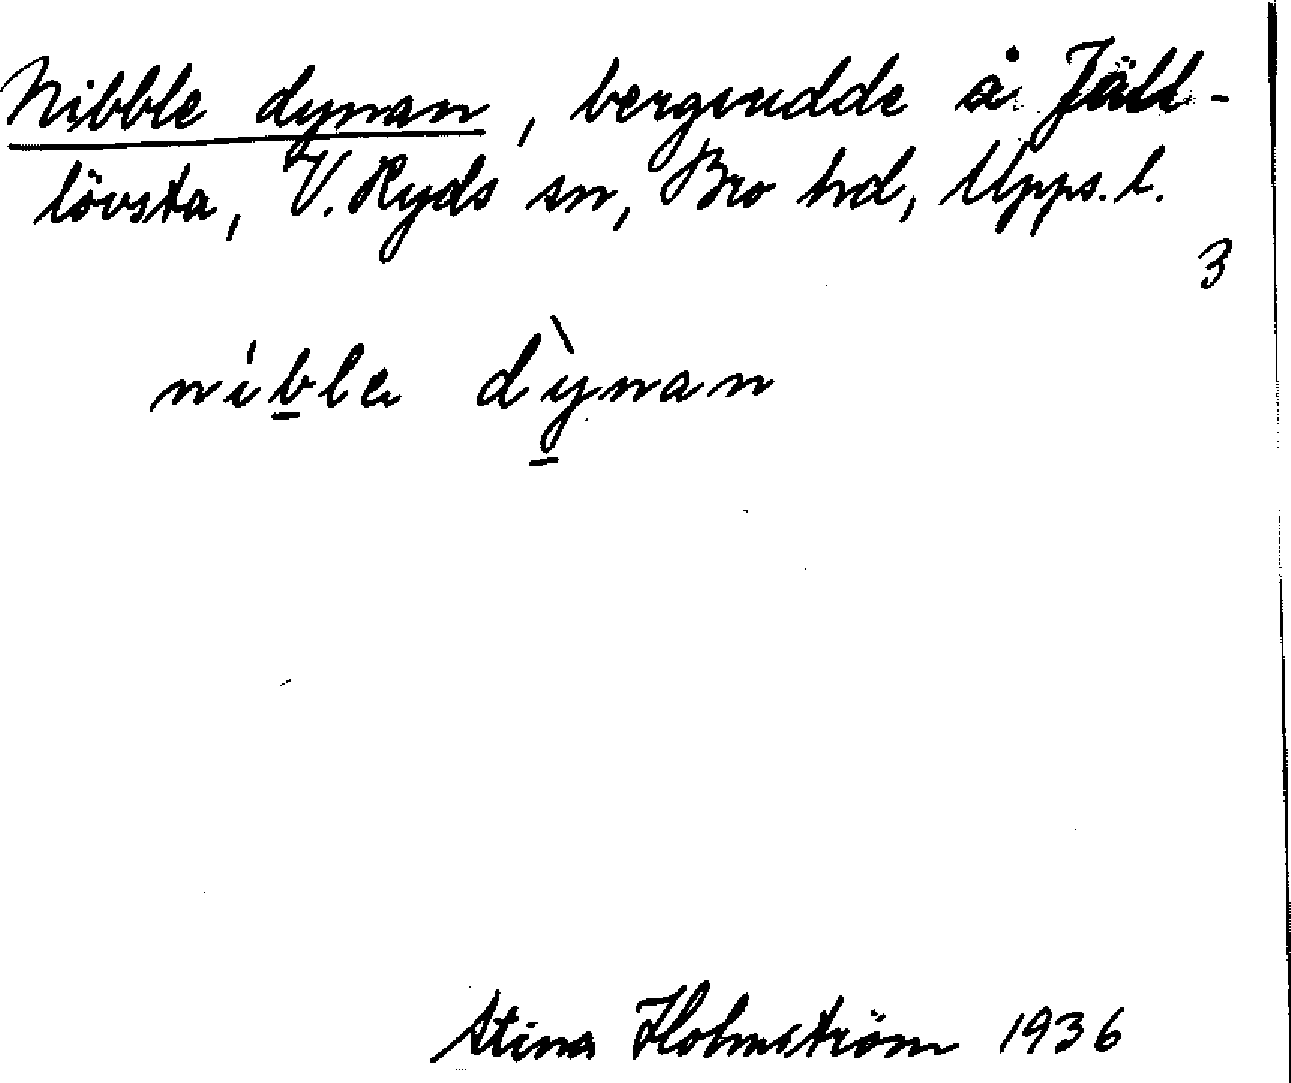 Nibble dynan, bergudde å Jäll-
lövsta, V. Ryds sn, Bro hd, Upps. l.
3
níble dỳnan
Stina Holmström 1936